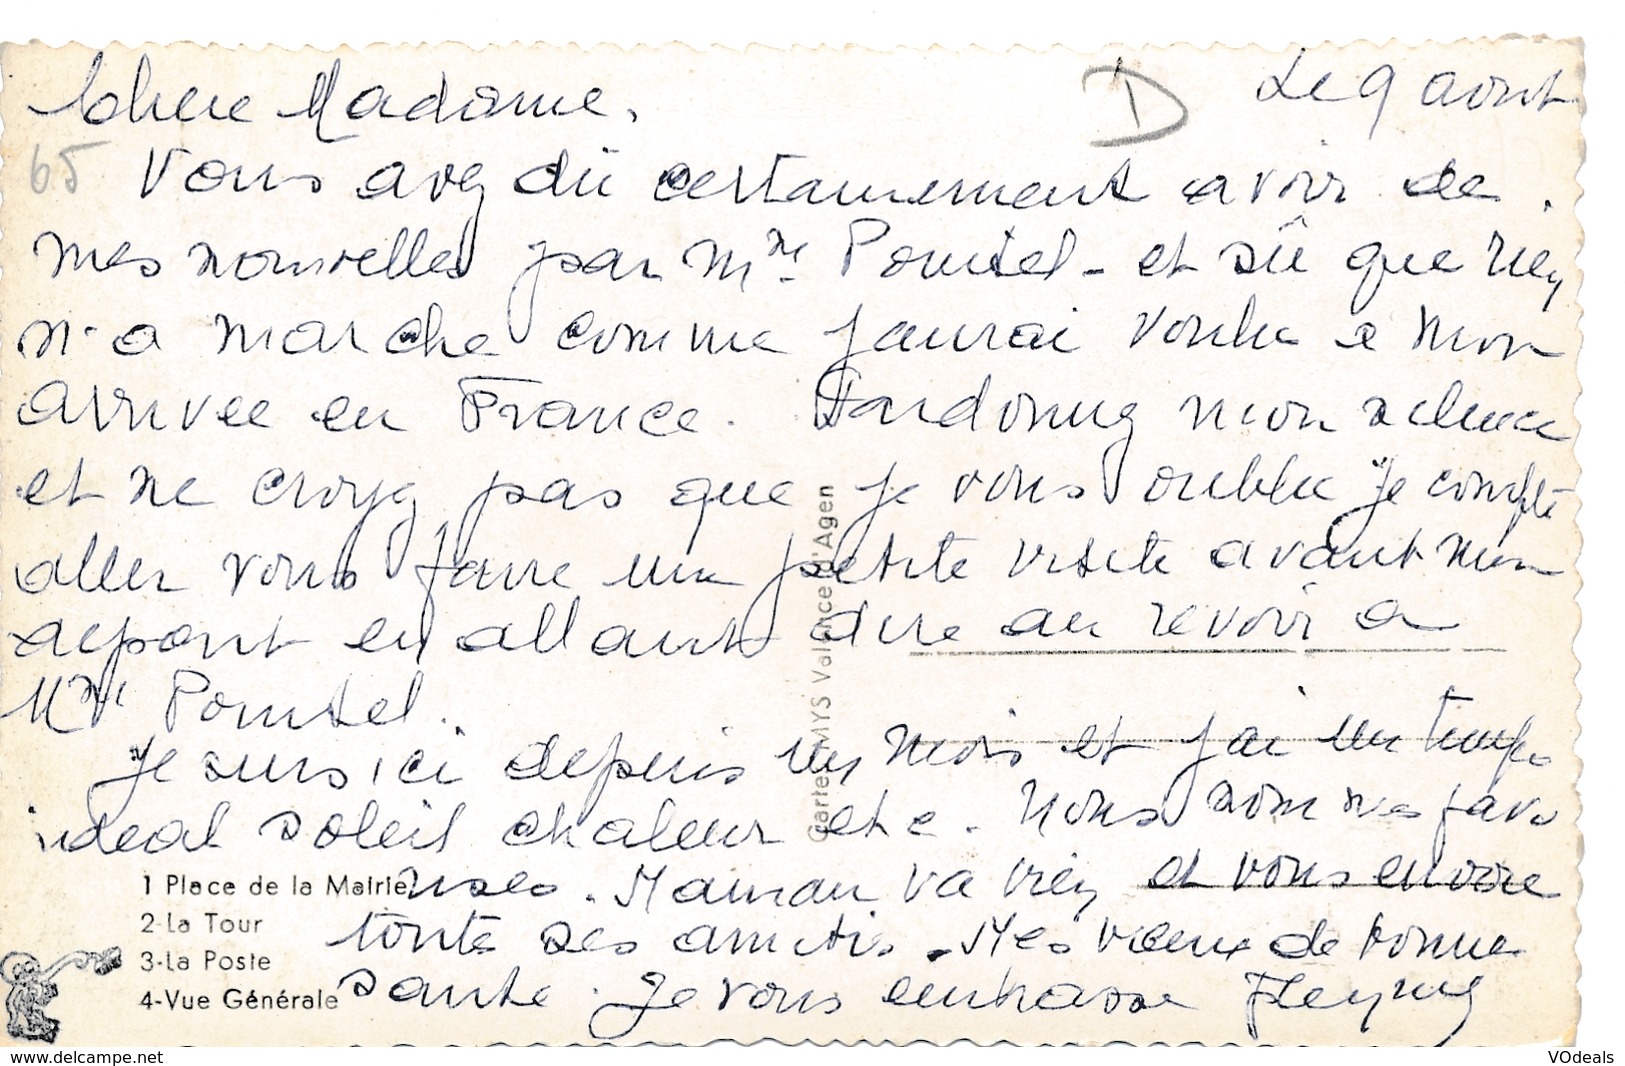 D Le 9 aout
Chere Madame,
65
Vous avez dû certainement avoir de
mes nouvelles par Mme Pomtel - et sû que rien
n'a marche comme j'aurai voulu a mon
arrivee en France. Pardonnez mon silence
et ne croyez pas que je vous oublie je compte
aller vous faire une petite visite avant mon
depart en allant dire au revoir a
Mme Pomtel.
Je suis ici depuis un mois et j'ai un temps
ideal soleil chaleur etc. Nous sommes favo
rises. Maman va bien et vous envoie
toute ses amities. Mes vœux de bonne
sante. Je vous embrasse
Cartes MYS Valence d'Agen
1 Place de la Mairie
2-La Tour
3-La Poste
4-Vue Générale
www.delcampe.net
VOdeals